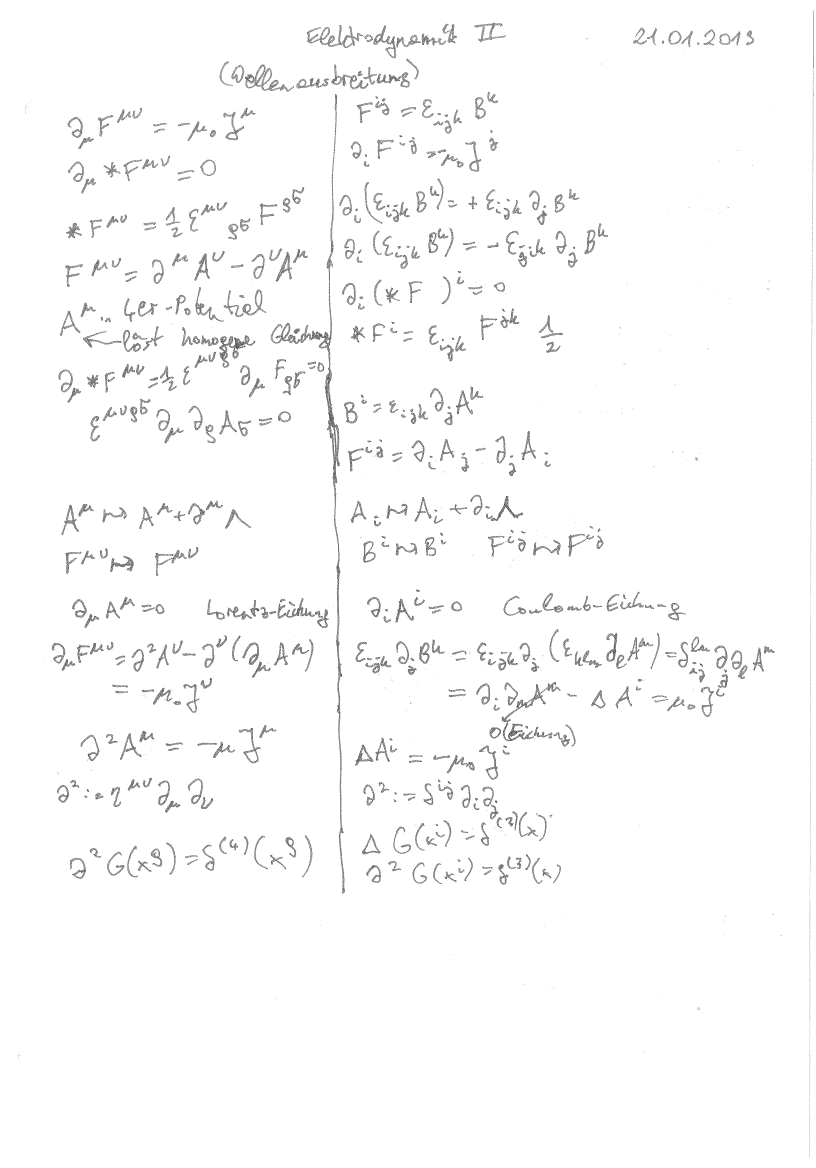 Elektrodynamik II 21.01.2013
(Wellenausbreitung)
∂_μ F^{μν} = -μ₀ J^μ
∂_μ *F^{μν} = 0
*F^{μν} = 1/2 ε^{μν}_{ρσ} F^{ρσ}
F^{μν} = ∂^μ A^ν - ∂^ν A^μ
A^μ ... 4er-Potential
← löst homogene Gleichung
∂_μ *F^{μν} = 1/2 ε^{μνρσ} ∂_μ F_{ρσ} = 0
ε^{μνρσ} ∂_μ ∂_ρ A_σ = 0
A^μ ↦ A^μ + ∂^μ Λ
F^{μν} ↦ F^{μν}
∂_μ A^μ = 0 Lorentz-Eichung
∂_μ F^{μν} = ∂² A^ν - ∂^ν (∂_μ A^μ)
= -μ₀ J^ν
∂² A^μ = -μ J^μ
∂² := η^{μν} ∂_μ ∂_ν
∂² G(x^ρ) = δ^{(4)}(x^ρ)
F^{ij} = ε_{ijk} B^k
∂_i F^{ij} = -μ₀ J^j
∂_i (ε_{ijk} B^k) = + ε_{ijk} ∂_j B^k
∂_i (ε_{ijk} B^k) = - ε_{jik} ∂_j B^k
∂_i (*F )^i = 0
*F^i = ε_{ijk} F^{jk} 1/2
B^i = ε_{ijk} ∂_j A^k
F^{ij} = ∂_i A_j - ∂_j A_i
A_i ↦ A_i + ∂_i Λ
B^i ↦ B^i F^{ij} ↦ F^{ij}
∂_i A^i = 0 Coulomb-Eichung
ε_{ijk} ∂_j B^k = ε_{ijk} ∂_j (ε_{klm} ∂_l A^m) = δ^{lm}_{ij} ∂_j ∂_l A^m
= ∂_i ∂_m A^m - Δ A^i = μ₀ J^i
0 (Eichung)
Δ A^i = -μ₀ J^i
∂² := δ^{ij} ∂_i ∂_j
Δ G(x^i) = δ^{(3)}(x)
∂² G(x^i) = δ^{(3)}(x)